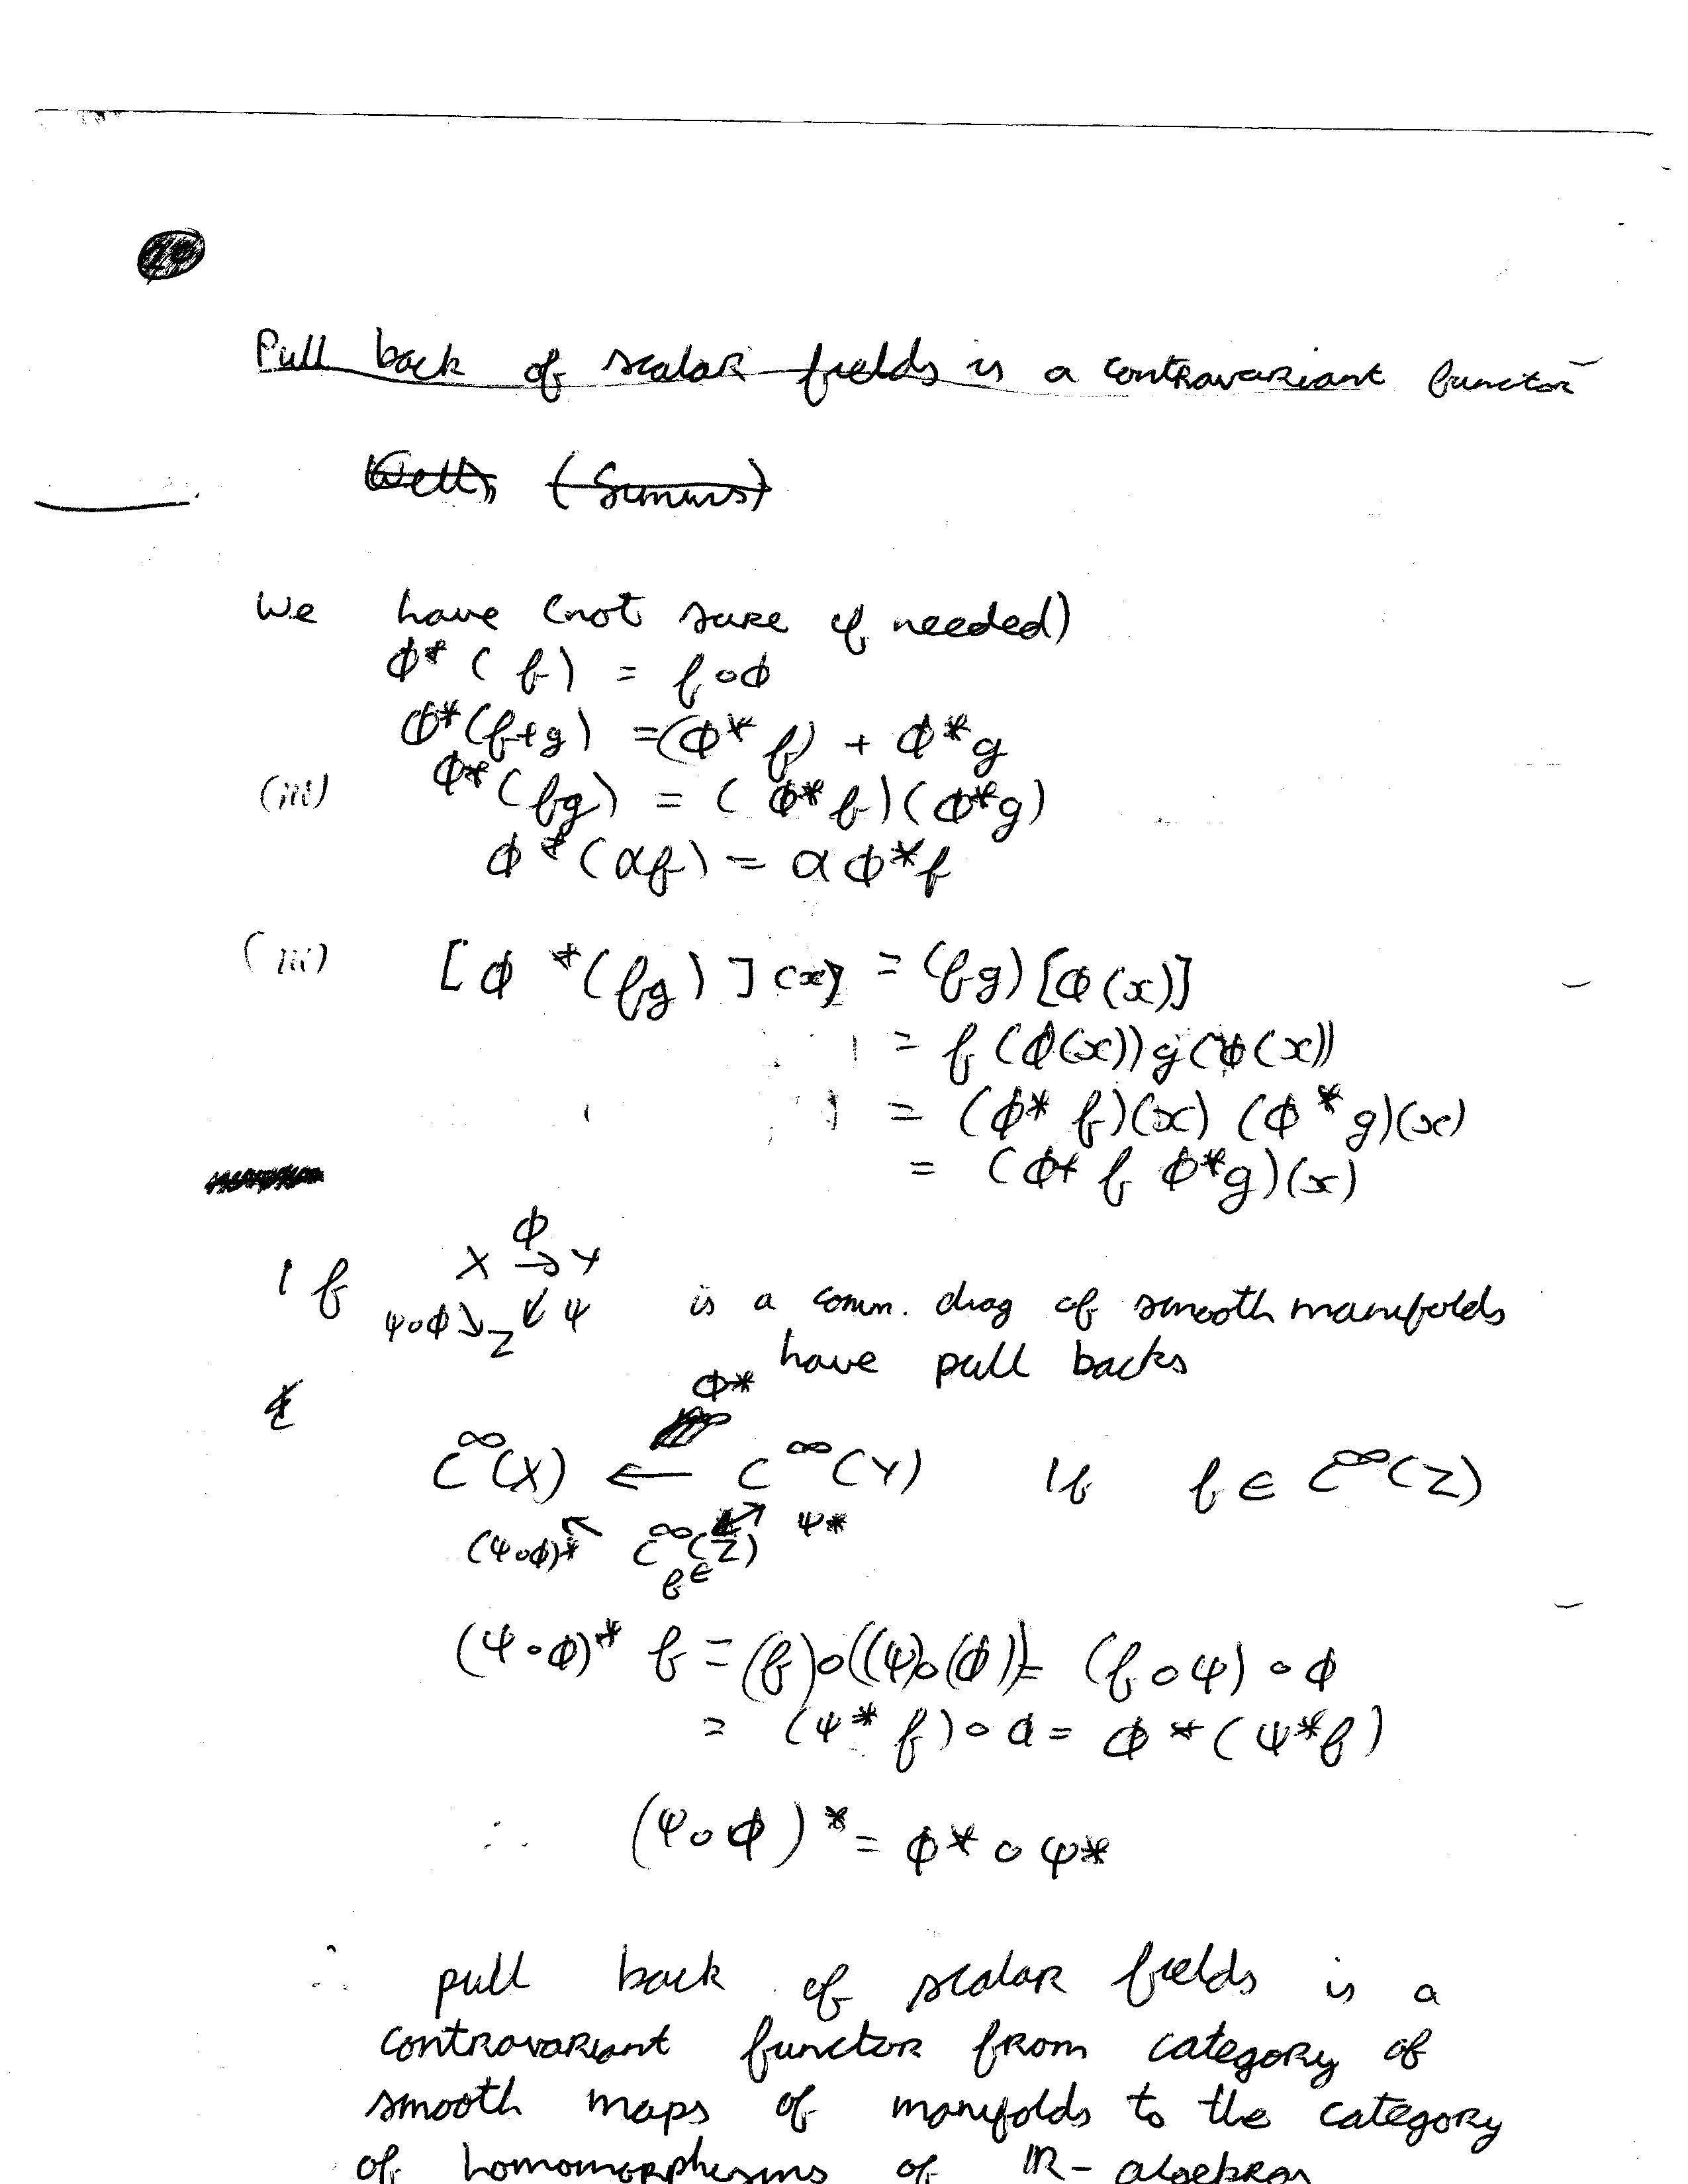 Pull back of scalar fields is a contravariant functor
We have (not sure if needed)
ϕ*(f) = f∘ϕ
ϕ*(f+g) = (ϕ* f) + ϕ*g
(iii) ϕ*(fg) = (ϕ*f)(ϕ*g)
ϕ*(αf) = αϕ*f
(iii) [ϕ*(fg)](x) = (fg)[ϕ(x)]
= f(ϕ(x))g(ϕ(x))
= (ϕ* f)(x) (ϕ*g)(x)
= (ϕ* f ϕ*g)(x)
ϕ
If X → Y
ψ∘ϕ ↘ Z ↙ ψ is a comm. diag of smooth manifolds
have pull backs
ϕ*
C^∞(X) ← C^∞(Y) If f ∈ C^∞(Z)
(ψ∘ϕ)* ↖ C^∞(Z) ↗ ψ*
f ∈
(ψ∘ϕ)* f = (f)∘((ψ)∘(ϕ)) = (f∘ψ)∘ϕ
= (ψ* f)∘ϕ = ϕ*(ψ*f)
∴ (ψ∘ϕ)* = ϕ*∘ψ*
∴ pull back of scalar fields is a
contravariant functor from category of
smooth maps of manifolds to the category
of homomorphisms of IR-algebras